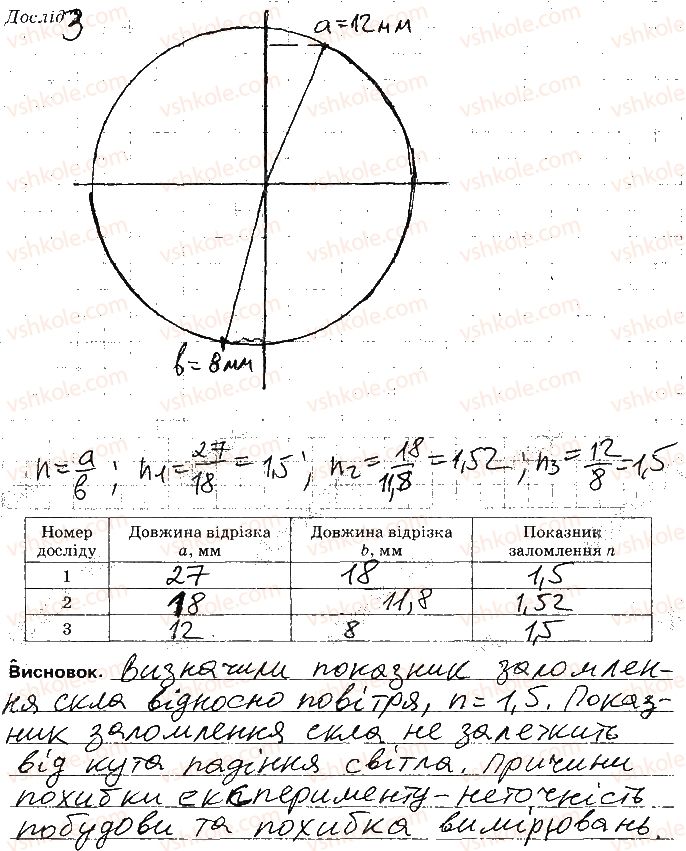 Дослід 3
a=12мм
в=8мм
n=a/в; n1=27/18=1,5; n2=18/11,8=1,52; n3=12/8=1,5
Номер досліду Довжина відрізка a, мм Довжина відрізка b, мм Показник заломлення n
1 27 18 1,5
2 18 11,8 1,52
3 12 8 1,5
Висновок. Визначили показник заломлен-
ня скла відносно повітря, n=1,5. Показ-
ник заломлення скла не залежить
від кута падіння світла. Причини
похибки експерименту-неточність
побудови та похибка вимірювань.
vshkole.com